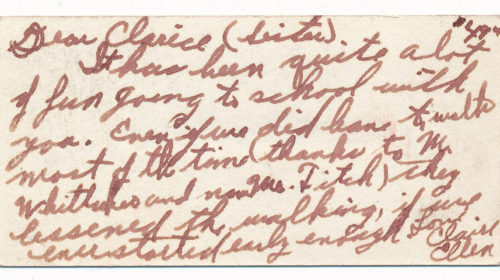 Dear Clarice (Sister)
It has been quite a lot
of fun going to school with
you. Even if we did have to walk
most of the time (thanks to Mr.
Whittaker and now Mr. Fitch) they
lessened the walking, if we
ever started early enough. Love
Claire
Ellen